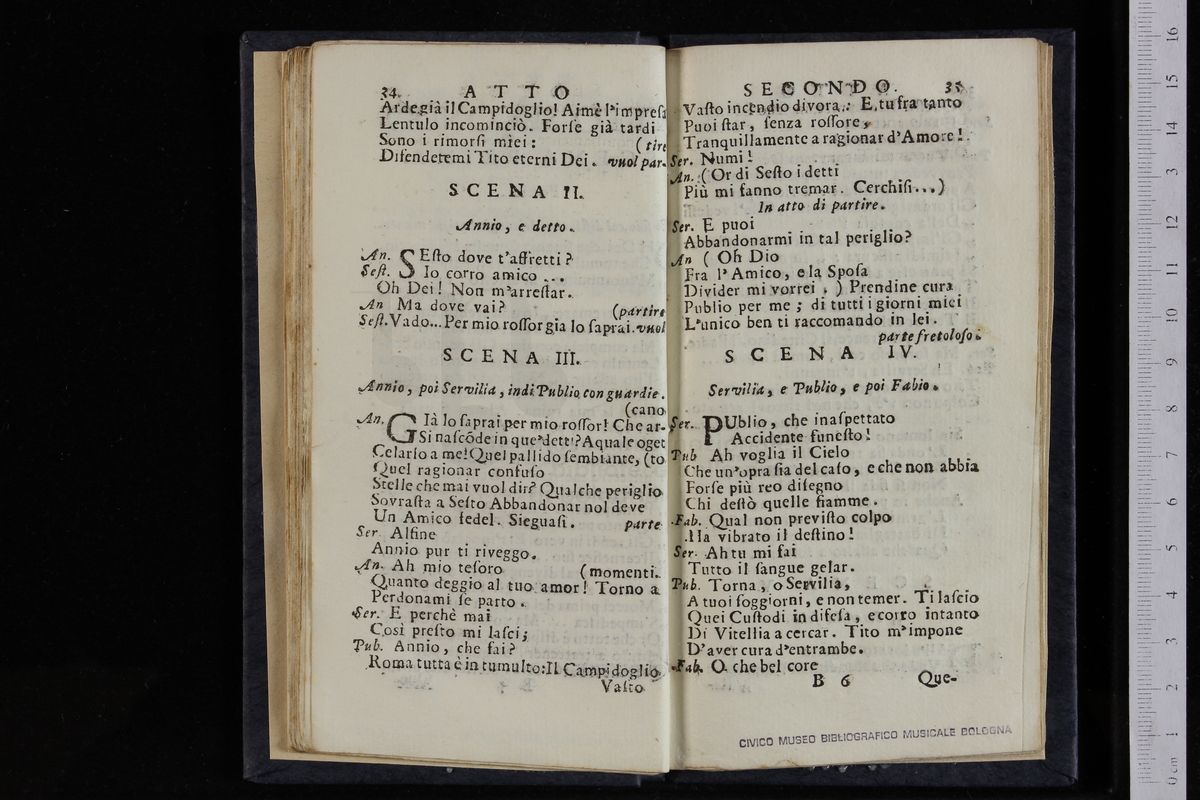 34. ATTO
Arde già il Campidoglio! Aimè l'impresa
Lentulo incominciò. Forſe già tardi
Sono i rimorſi miei: (tire
Difendetemi Tito eterni Dei. vuol par-
SCENA II.
Annio, e detto.
An. SEſto dove t'affretti?
Seſt. Io corro amico ...
Oh Dei! Non m'arreſtar.
An Ma dove vai? (partire
Seſt. Vado... Per mio roſſor gia lo ſaprai. vuol
SCENA III.
Annio, poi Servilia, indi Publio con guardie.
(cano
An. GIà lo ſaprai per mio roſſor! Che ar-
Si naſcõde in que'detti? A qual e oget
Celarlo a me! Quel pallido ſembiante, (to
Quel ragionar confuſo
Stelle che mai vuol dir? Qualche periglio
Sovraſta a Seſto Abbandonar nol deve
Un Amico fedel. Sieguaſi. parte
Ser. Alfine
Annio pur ti riveggo.
An. Ah mio teſoro (momenti.
Quanto deggio al tuo amor! Torno a
Perdonami ſe parto.
Ser. E perchè mai
Così preſto mi laſci;
Pub. Annio, che fai?
Roma tutta è in tumulto: Il Campidoglio
Vaſto
SECONDO. 35
Vaſto incendio divora.: E, tu fra tanto
Puoi ſtar, ſenza roſſore,
Tranquillamente a ragionar d'Amore!
Ser. Numi!
An. (Or di Seſto i detti
Più mi fanno tremar. Cerchiſi...)
In atto di partire.
Ser. E puoi
Abbandonarmi in tal periglio?
An ( Oh Dio
Fra l'Amico, e la Spoſa
Divider mi vorrei. ) Prendine cura
Publio per me; di tutti i giorni miei
L'unico ben ti raccomando in lei.
parte fretoloſo.
SCENA IV.
Servilia, e Publio, e poi Fabio.
Ser. PUblio, che inaſpettato
Accidente funeſto!
Pub Ah voglia il Cielo
Che un'opra ſia del caſo, e che non abbia
Forſe più reo diſegno
Chi deſtò quelle fiamme.
Fab. Qual non previſto colpo
Ha vibrato il deſtino!
Ser. Ah tu mi fai
Tutto il ſangue gelar.
Pub. Torna, o Servilia,
A tuoi ſoggiorni, e non temer. Ti laſcio
Quei Cuſtodi in difeſa, e corro intanto
Di Vitellia a cercar. Tito m'impone
D'aver cura d'entrambe.
Fab. O che bel core
B 6 Que-
CIVICO MUSEO BIBLIOGRAFICO MUSICALE BOLOGNA
0 cm 1 2 3 4 5 6 7 8 9 10 11 12 13 14 15 16